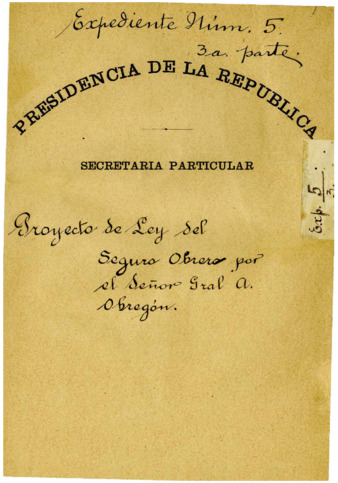 Expediente Núm. 5.
3a. parte.
PRESIDENCIA DE LA REPUBLICA
SECRETARIA PARTICULAR
Exp. 5
3.
Proyecto de Ley del
Seguro Obrero por
el Señor Gral A.
Obregón.